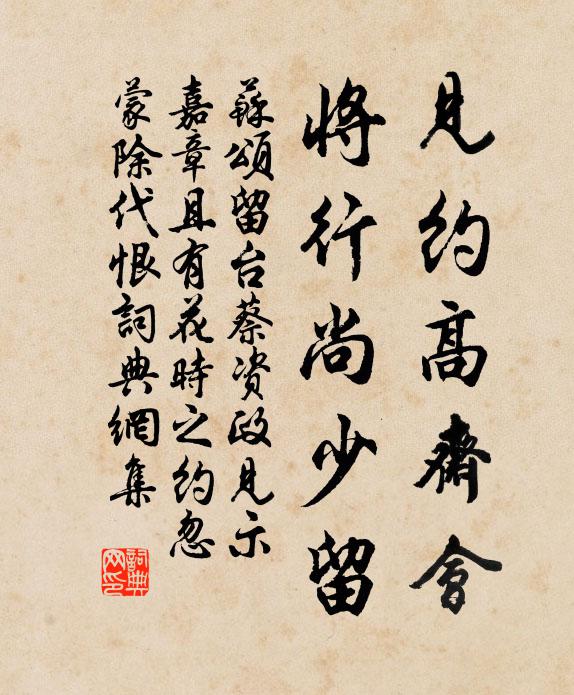 見約高齋會
將行尚少留
蘇頌留台蔡资政見示
嘉章且有花時之約忽
蒙除代恨詞典網集
詞典网印